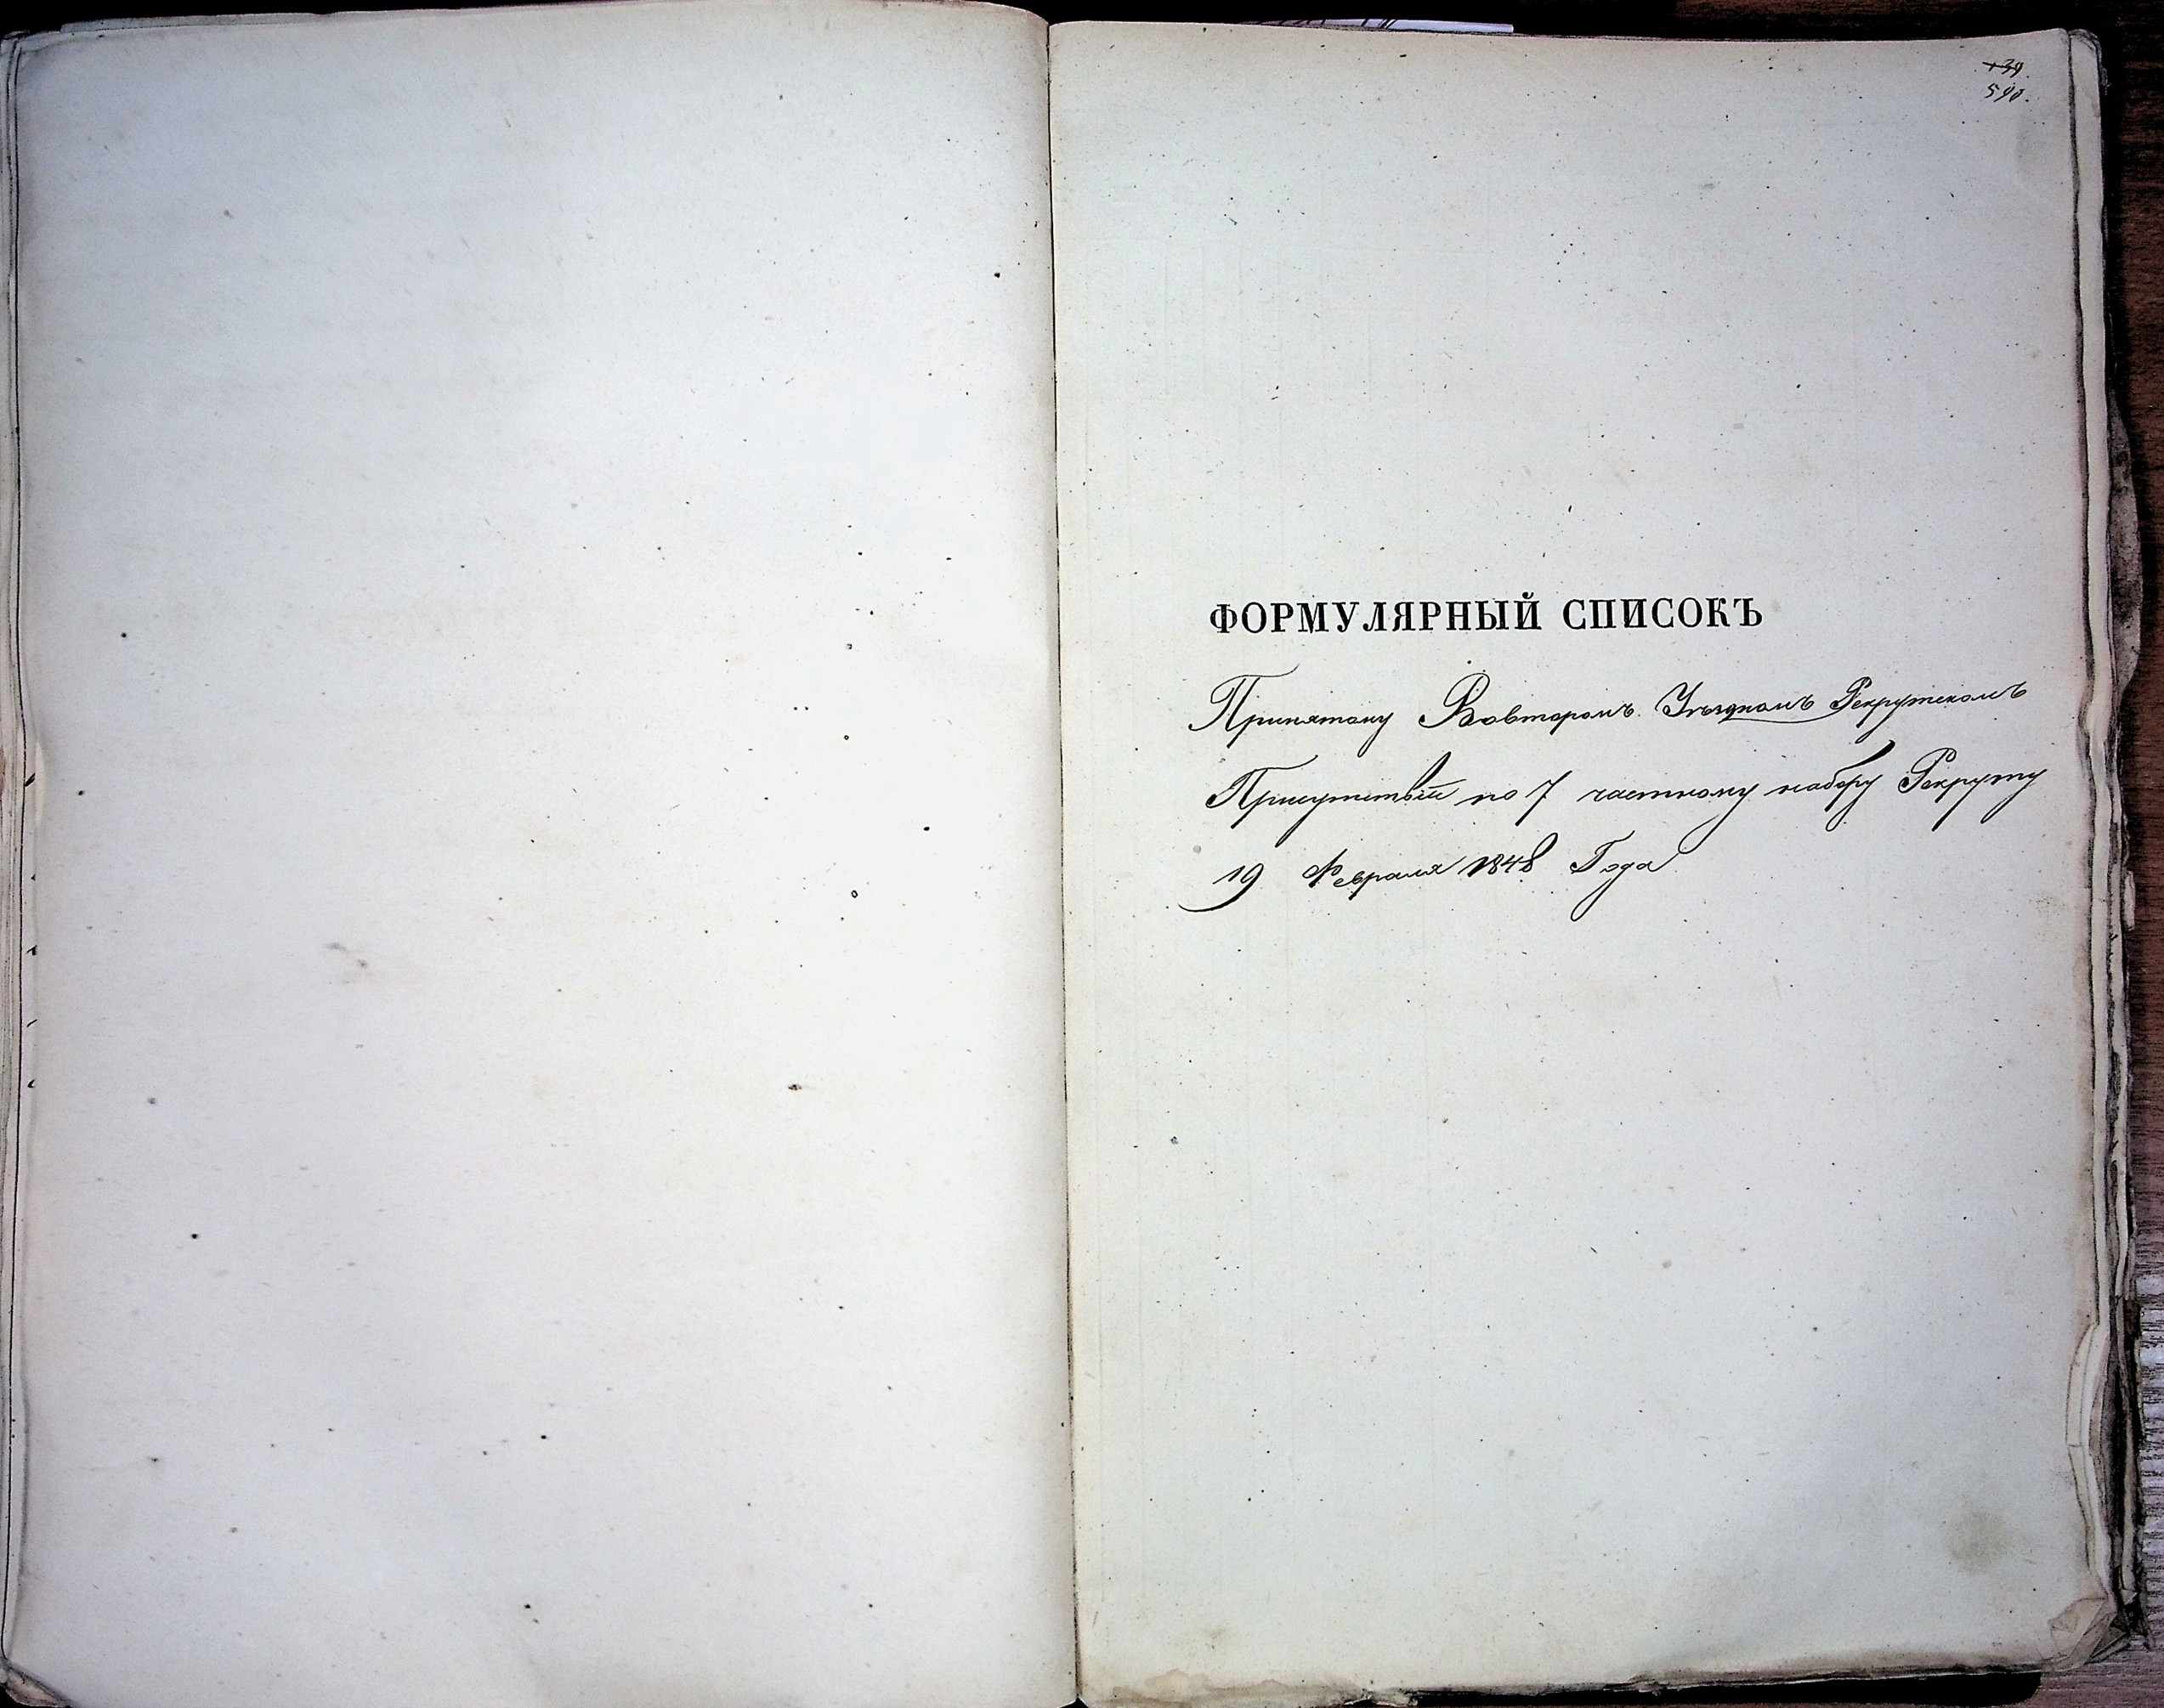 590.
ФОРМУЛЯРНЫЙ СПИСОКЪ
Принятому Вовторомъ Уѣздномъ Рекрутскомъ
Присутствіи по 7 частному набору Рекруту
19 Февраля 1848 Года